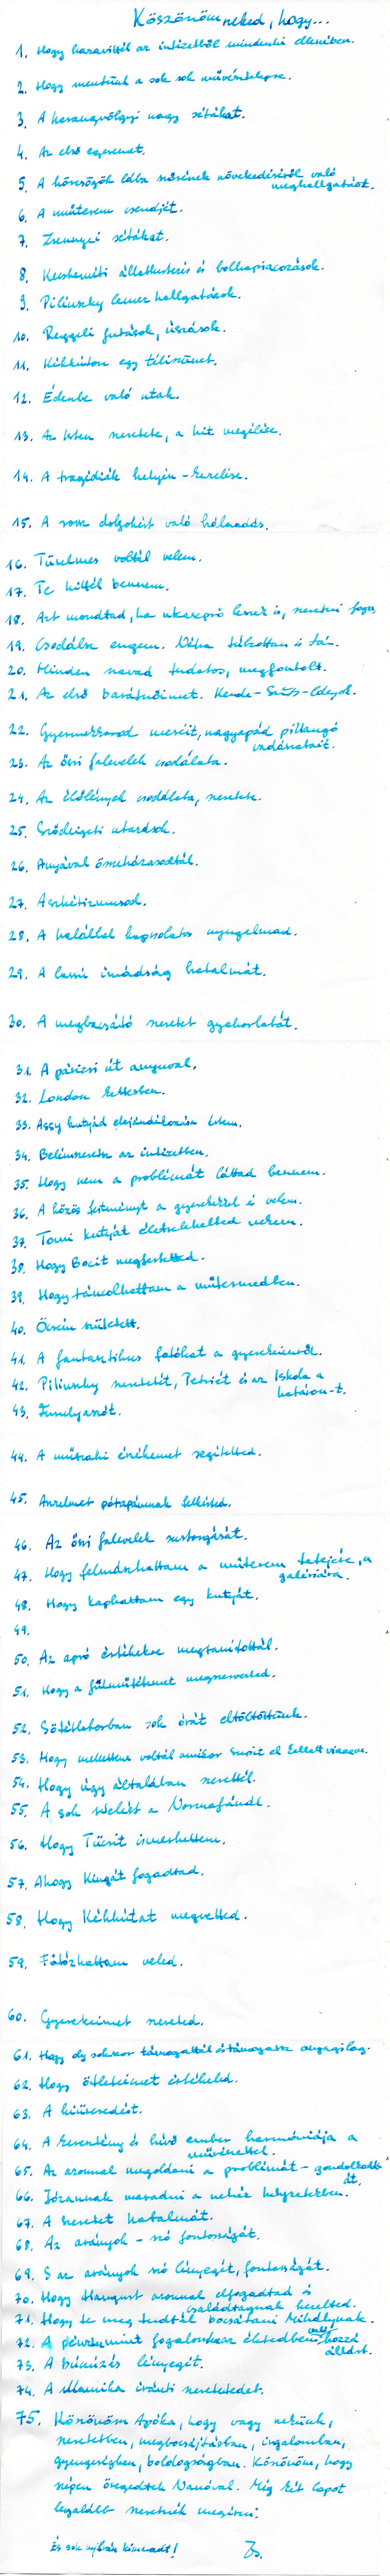 Köszönöm neked, hogy...
1. Hogy hazavittél az intézetből mindenki ellenében.
2. Hogy mentünk a sok sok művésztelepre.
3. A harangvölgyi nagy sétákat.
4. Az első egeremet.
5. A hörcsögök lába növésének növekedéséről való
meghallgatást.
6. A műterem csendjét.
7. Zsennyei sétákat.
8. Kecskeméti állatkertezés és bolhapiacozások.
9. Pilinszky lemez hallgatások.
10. Reggeli futások, úszások.
11. Kékkúton egy télisünet.
12. Édenbe való utak.
13. Az Isten szeretete, a hit megélése.
14. A tragédiák helyén - kezelése.
15. A rossz dolgokért való hálaadás.
16. Türelmes voltál velem.
17. Te hittél bennem.
18. Azt mondtad, ha utcaseprő leszek is, szeretni fogsz.
19. Csodálsz engem. Néha túlzottan is tán.
20. Minden szavad tudatos, megfontolt.
21. Az első barátnőimet.
22. Gyermekkorod meséit, nagyapád pillangó
vadászatait.
23. Az őszi falevelek csodálata.
24. Az élőlények csodálata, szeretete.
25. Szödligeti utazások.
26. Anyával összeházasodtál.
27. Aszkétizmusod.
28. A halállal kapcsolatos nyugalmad.
29. A lassú imádság hatalmát.
30. A megbocsátó szeretet gyakorlatát.
31. A párizsi út anyuval.
32. London kettesben.
33. Assy kutyád elajándékozása értem.
34. Beleszerettem az intézetben.
35. Hogy nem a problémát láttad bennem.
36. A közös festményt a gyerekekkel és velem.
37. Tomi kutyát életrekeltetted nekem.
38. Hogy Bocit megfestetted.
39. Hogy táncolhattam a műtermedben.
40. Öcsém született.
41. A fantasztikus fotókat a gyerekeimről.
42. Pilinszky szeretetét, Petriét és az Iskola a
határon-t.
43. Furulyaszót.
44. A műszaki érzékemet segítetted.
45. Anzelmet pótapámnak felkérted.
46. Az őszi falevelek susogását.
47. Hogy felmászhattam a műterem tetejére, a
galériára.
48. Hogy kaphattam egy kutyát.
49.
50. Az apró értékekre megtanítottál.
51. Hogy a fülműtétemet megszervezted.
52. Sötétlaborban sok órát eltöltöttünk.
53. Hogy mellettem voltál amikor Suzit el kellett vinnem.
54. Hogy úgy általában szerettél.
55. A sok síelést a Normafánál.
56. Hogy Tücsit ismerhettem.
57. Ahogy Kingát fogadtad.
58. Hogy Kékkútat megvetted.
59. Fotózhattam veled.
60. Gyerekeimet szereted.
61. Hogy oly sokszor támogattál és támogatsz anyagilag.
62. Hogy ötleteimet értékeled.
63. A kiüresedést.
64. A keresztény és hívő ember harmóniája a
művészettel.
65. Az azonnal megoldani a problémát - gondolkodás
át.
66. Józannak maradni a nehéz helyzetekben.
67. A szeretet hatalmát.
68. Az arányok - szó fontosságát.
69. S az arányok szó lényegét, fontosságát.
70. Hogy Hangust azonnal elfogadtad és
családtagnak kezelted.
71. Hogy te meg tudtál bocsátani Mihálynak.
72. A pénz mint fogalomhasz életedben való hozzá
állást.
73. A búcsúzás lényegét.
74. A Mamika iránti szeretetedet.
75. Köszönöm Apóka, hogy vagy nekünk,
szeretetben, megbocsájtásban, irgalomban,
gyengeségben, boldogságban. Köszönöm, hogy
szépen öregedtek Nanóval. Még két lapot
legalább szeretnék megírni.
És sok nyilván kimaradt! Zs.